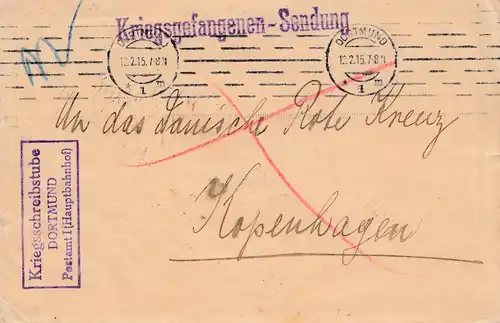 Kriegsgefangenen-Sendung
DORTMUND
12.2.15.7-8N
* 1 m
DORTMUND
12.2.15.7-8N
* 1 m
An das Dänische Rote Kreuz
Kopenhagen
Kriegsschreibstube
DORTMUND
Postamt I (Hauptbahnhof)